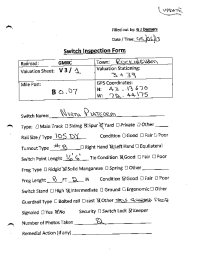 UPDATE
Filled out by: N J Demers
Date / Time:
Switch Inspection Form
Railroad: GMRC Town: Rockingham
Valuation Sheet: V3 / 1 Valuation Stationing: 3 + 39
Mile Post: B 0.07 GPS Coordinates:
N: 43.13670
W: 72.44175
Switch Name:
Type: □ Main Track □ Siding Spur Yard □ Private □ Other
Rail Size / Type 105 DY Condition □ Good □ Fair □ Poor
Turnout Type # 8 □ Right Hand Left Hand □ Equilateral
Switch Point Length 16' 6" Tie Condition Good □ Fair □ Poor
Frog Type □ Ridgid Solid Manganese □ Spring □ Other
Frog Lenght Condition Good □ Fair □ Poor
Switch Stand □ High Intermediate □ Ground □ Ergonomic □ Other
Guardrail Type □ Bolted rail □ cast Other
Signaled □ Yes No Security □ Switch Lock Keeper
Number of Photos Taken
Remedial Action (if any)